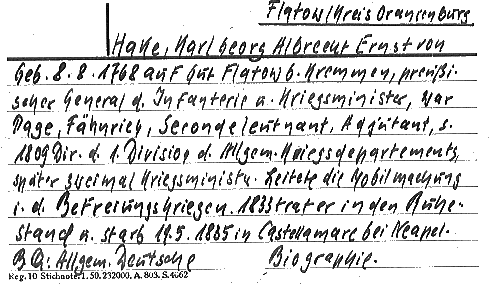 Flatow/Kreis Oranienburg
Hake, Karl Georg Albrecht Ernst von
Geb. 8.8.1768 auf Gut Flatow b. Kremmen, preußi-
scher General d. Infanterie u. Kriegsminister, war
Page, Fähnrich, Secondeleutnant, Adjutant, s.
1809 Dir. d. 1. Division d. Allgem. Kriegsdepartements,
später zweimal Kriegsminister. Leitete die Mobilmachung
i. d. Befreiungskriegen. 1833 trat er in den Ruhe-
stand u. starb 19.5.1835 in Castellamare bei Neapel.
BQ: Allgem. Deutsche Biographie.
Reg. 10 Stichnote 1. 50. 232000. A. 803. S. 4662